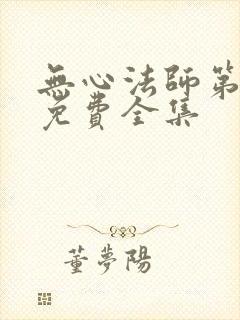 無心法師第
免費全集
董夢陽